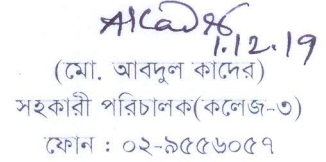 1.12.19
(মো. আবদুল কাদের)
সহকারী পরিচালক(কলেজ-৩)
ফোন : ০২-৯৫৫৬০৫৭